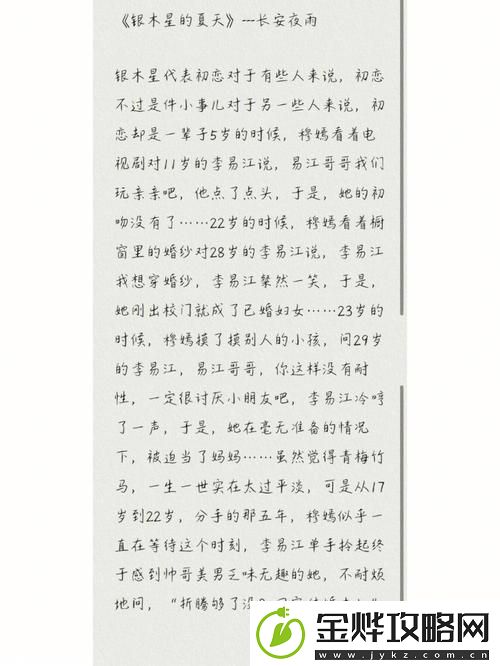 《银木星的夏天》---长安夜雨
银木星代表初恋对于有些人来说，初恋
不过是件小事儿对于另一些人来说，初
恋却是一辈子5岁的时候，穆嫣看着电
视剧对11岁的李易江说，易江哥哥我们
玩亲亲吧，他点了点头，于是，她的初
吻没有了……22岁的时候，穆嫣看着橱
窗里的婚纱对28岁的李易江说，李易江
我想穿婚纱，李易江粲然一笑，于是，
她刚出校门就成了已婚妇女……23岁的
时候，穆嫣摸了摸别人的小孩，问29岁
的李易江，易江哥哥，你这样没有耐
性，一定很讨厌小朋友吧，李易江冷哼
了一声，于是，她在毫无准备的情况
下，被迫当了妈妈……虽然觉得青梅竹
马，一生一世实在太过平淡，可是从17
岁到22岁，分手的那五年，穆嫣似乎一
直在等待这个时刻，李易江单手拎起终
于感到帅哥美男乏味无趣的她，不耐烦
地问，“折腾够了没？
金烨攻略网
www.jykz.com.cn